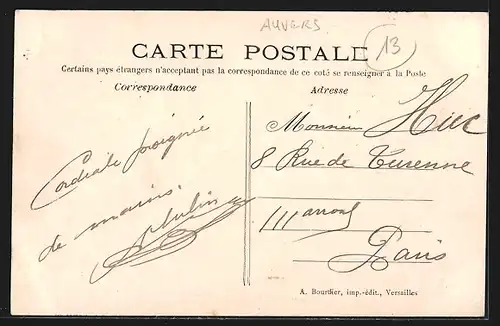 AUVERS
13
CARTE POSTALE
Certains pays étrangers n'acceptant pas la correspondance de ce coté se renseigner à la Poste
Correspondance
Adresse
Cordiale poignée
de mains.
Monsieur Huc
8 Rue de Turenne
III arrond
Paris
A. Bourdier, imp.-édit., Versailles